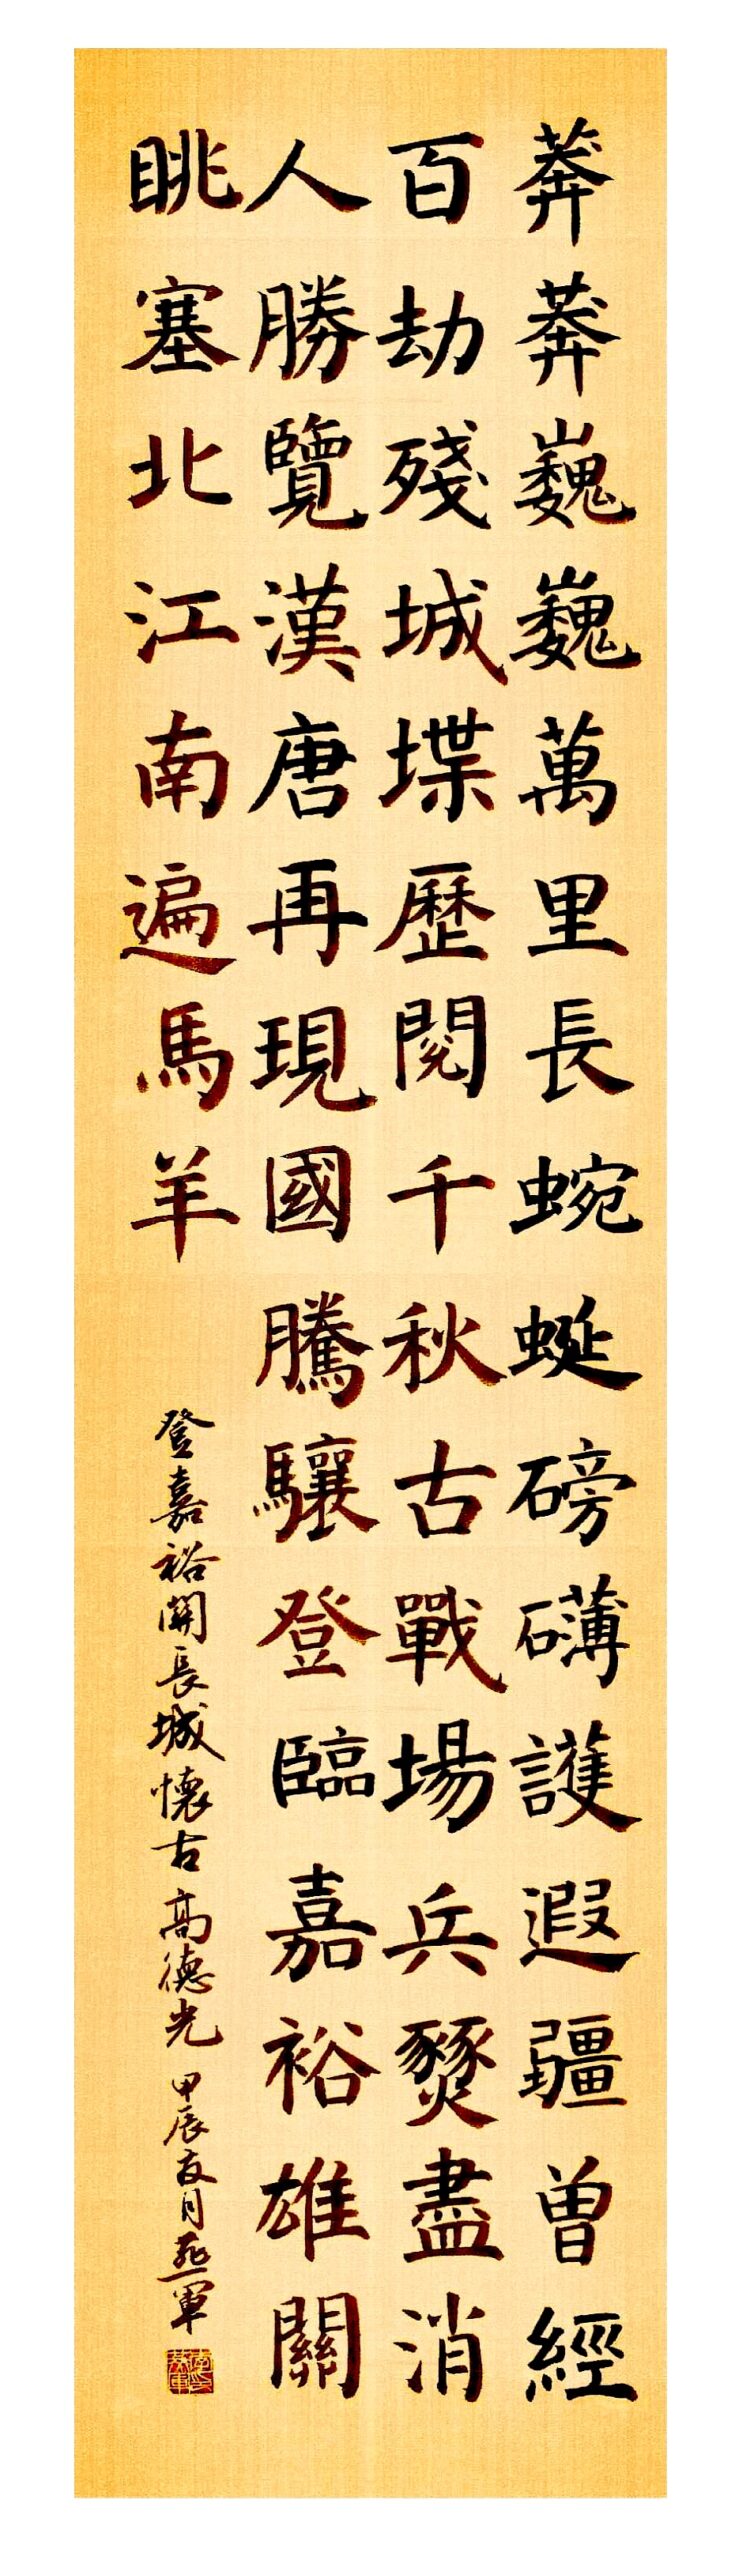 莽莽巍巍萬里長蜿蜒磅礴護遐疆曾經
百劫殘城堞歷閱千秋古戰場兵燹盡消
人勝覽漢唐再現國騰驤登臨嘉裕雄關
眺塞北江南遍馬羊
登嘉裕関長城懷古 高德光 甲辰友月 燕軍